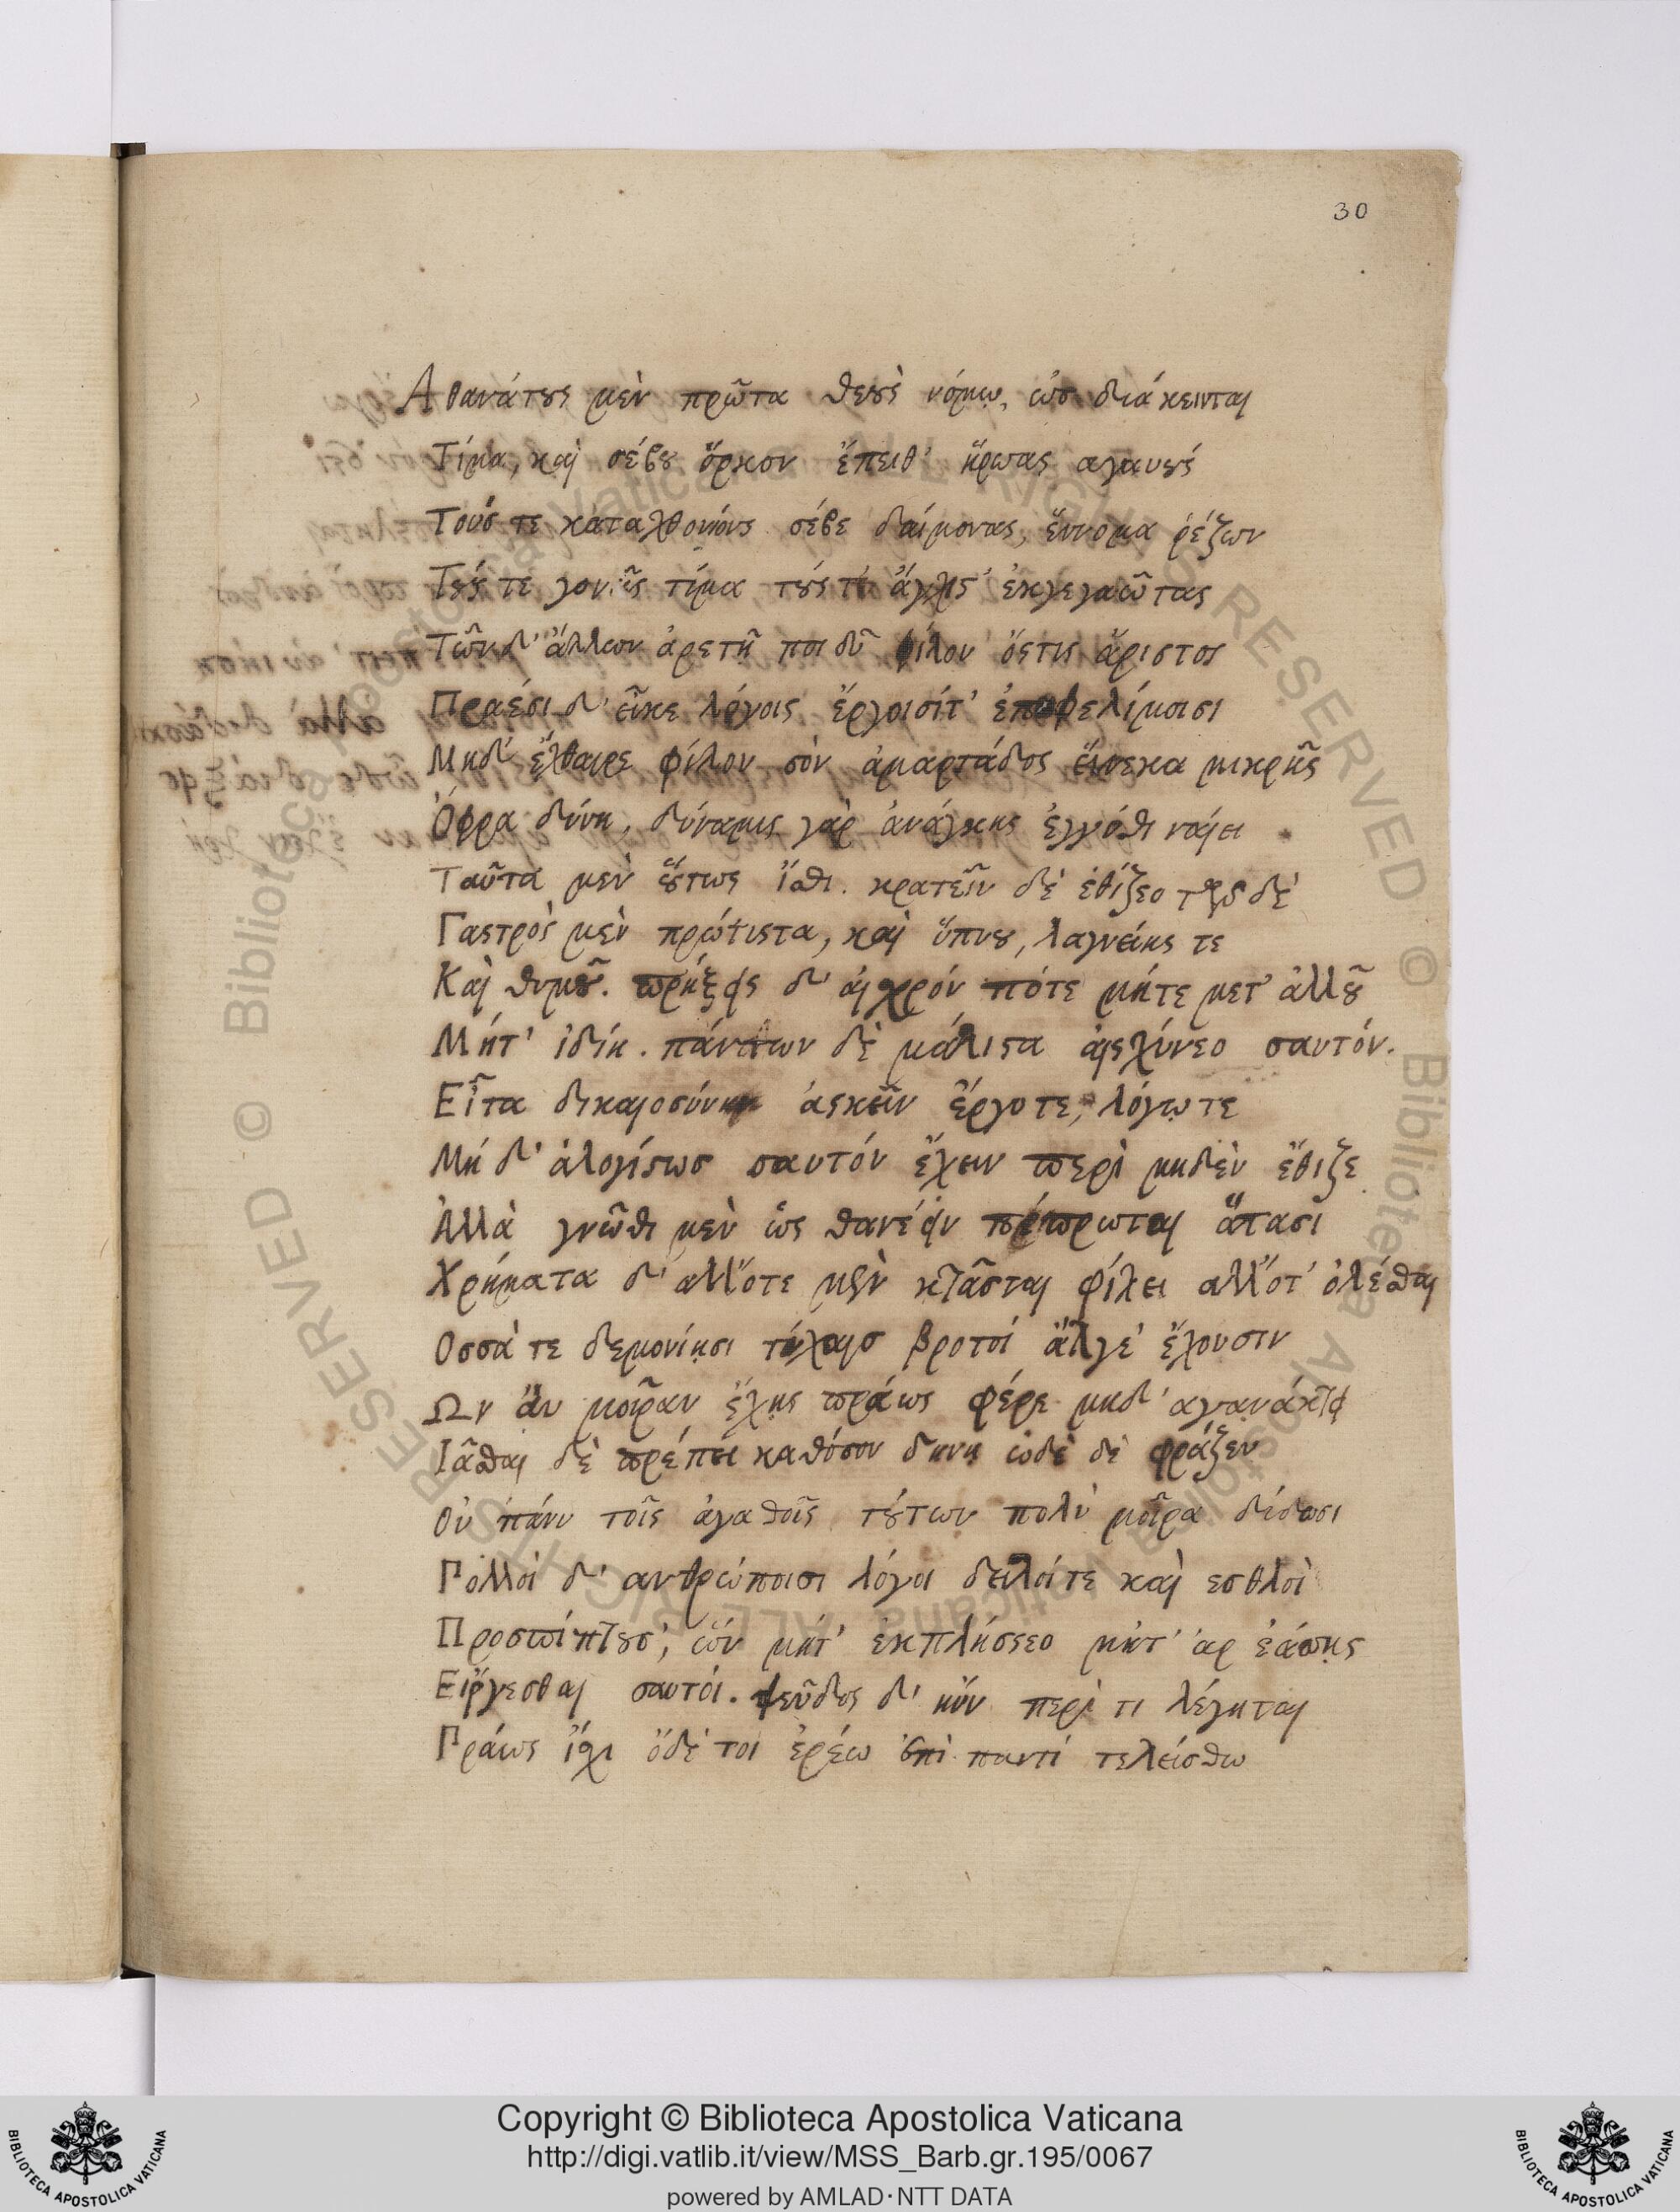 30
Αθανάτους μὲν πρῶτα θεοὺς νόμῳ, ὡσ διάκεινται
Τίμα, καὶ σέβου ὅρκον ἔπειθ' ἥρωας αγαυούς
Τούσ τε καταχθονίους σέβε δαίμονας, ἔννομα ῥέζων
Τούς τε γονεῖς τίμα τούς τ' ἄγχισ' ἐκγεγαῶτας
Τῶν δ' ἄλλων ἀρετῇ ποιοῦ φίλον ὅστις ἄριστος
Πραέσι δ' εἶκε λόγοις ἔργοισίτ' ἐπωφελίμοισι
Μηδ' ἔχθαιρε φίλον σὸν ἁμαρτάδος εἵνεκα μικρῆς
Ὄφρα δύνῃ, δύναμις γὰρ ἀνάγκης ἐγγύθι ναίει
Ταῦτα μὲν οὕτως ἴσθι. κρατεῖν δὲ ἐθίζεο τῶν δὲ
Γαστρὸς μὲν πρώτιστα, καὶ ὕπνου, λαγνείης τε
Καὶ θυμοῦ. πρήξεις δ' αἰσχρόν πότε μήτε μετ' ἀλλοῦ
Μήτ' ἰδίη. πάντων δὲ μάλιστα αἰσχύνεο σαυτόν.
Εἶτα δικαιοσύνην ἀσκεῖν ἔργοτε, λόγῳτε
Μή δ' ἀλογίστωσ σαυτόν ἔχειν περὶ μηδὲν ἔθιζε
Ἀλλὰ γνῶθι μὲν ὡς θανέειν πέπρωται ἅπασι
Χρήματα δ' αλλ̓ότε μὲν κτᾶσται φίλει αλλ̓ότ' ὀλέσθαι
Οσσά τε δεμονίῃσι τύχαισ βροτοί ἄλγε' ἔχουσιν
Ων ἂν μοῖραν ἔχῃς πράως φέρε μηδ' αγανάκτει
Ιᾶσθαι δὲ πρέπει καθόσον δηνη ὡδὲ δὲ φράζεν
Οὐ πάνυ τοῖς ἀγαθοῖς τούτων πολὺ μοῖρα δίδωσι
Πολλοὶ δ' ανθρώποισι λόγοι δειλοίτε καὶ εσθλοὶ
Προσπίπτουσ', ὧν μήτ' ἐκπλήσσεο μήτ' αρ ἐάσῃς
Είργεσθαι σαυτόι. ψεῦδος δ' ἤν περί τι λέγηται
Πράως ἴσχι ὅδέ τοι ἐρέω ἐπὶ παντί τελείσθω
Copyright © Biblioteca Apostolica Vaticana
http://digi.vatlib.it/view/MSS_Barb.gr.195/0067
powered by AMLAD·NTT DATA